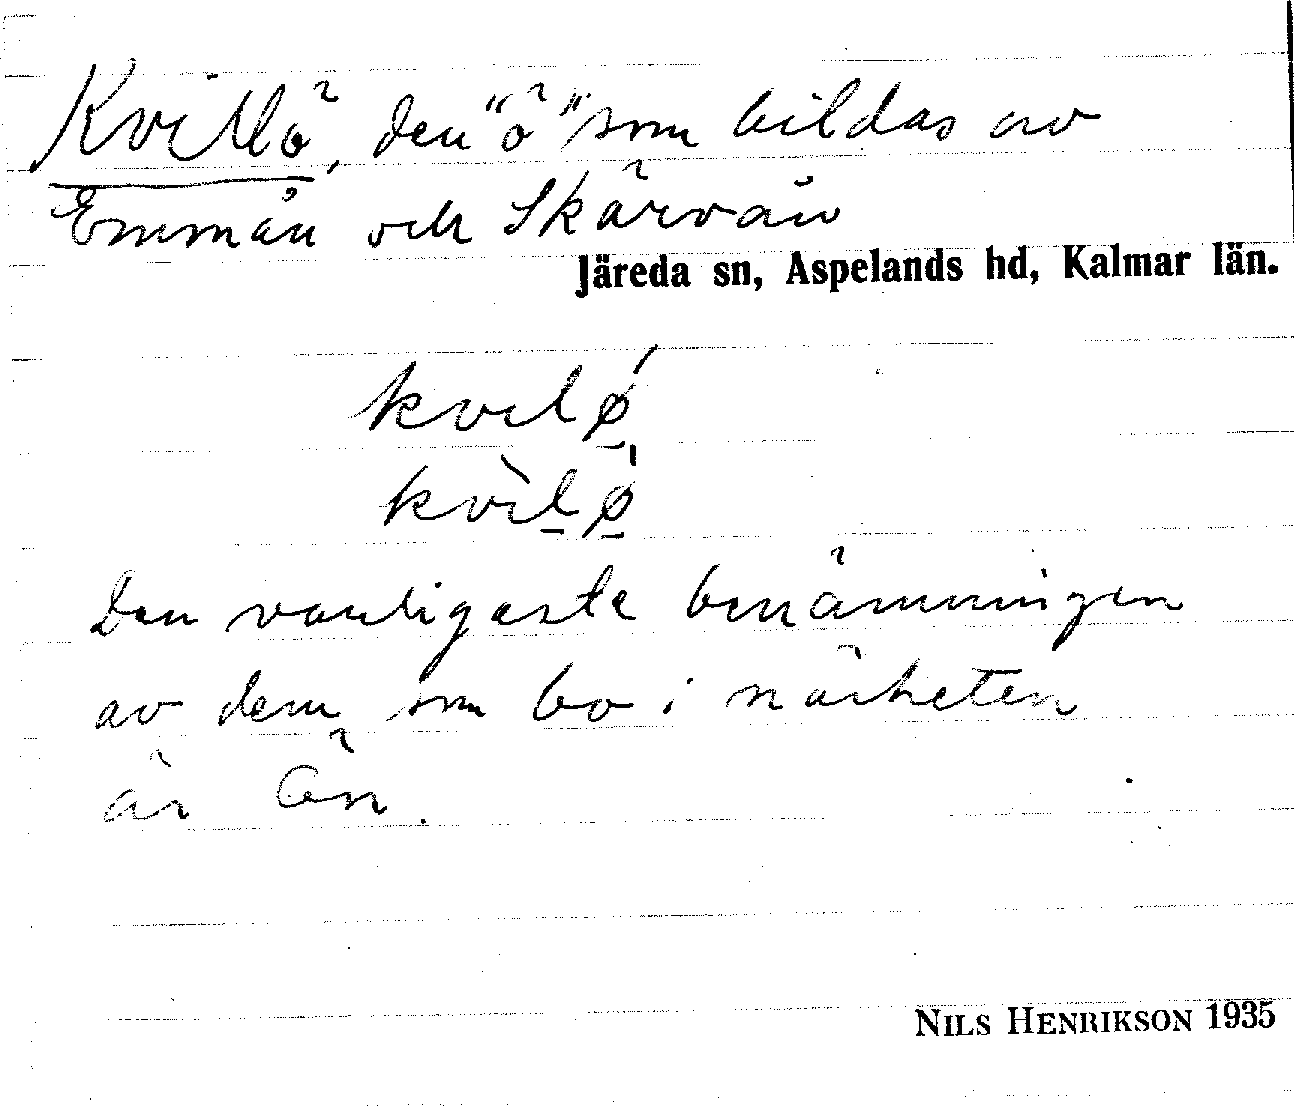 Kvillö, den "ö" som bildas av
Emmån och Skärvån
Järeda sn, Aspelands hd, Kalmar län.
kvilǿ
kvìlø̀
Den vanligaste benämningen
av dem som bo i närheten
är Ön.
NILS HENRIKSON 1935